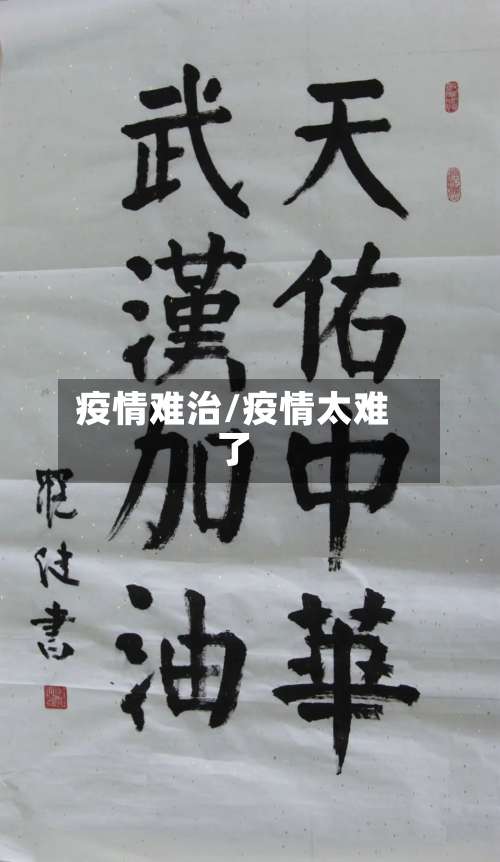 天佑中華
武漢加油
疫情难治/疫情太难
了